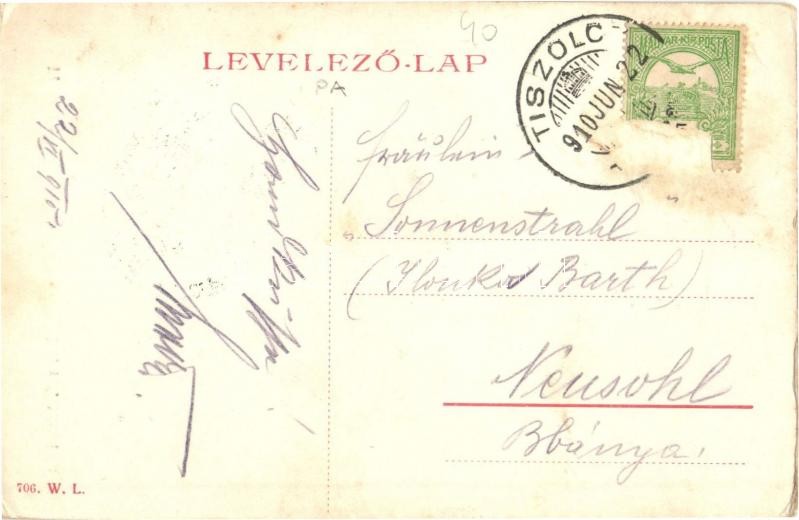 40
LEVELEZŐ-LAP
PA
TISZOLC
910 JUN. 22
MAGYAR·KIR·POSTA
22/VI 910
Fräulein
„Sonnenstrahl"
(Ilonka Barth)
Neusohl
Bbánya.
706. W. L.